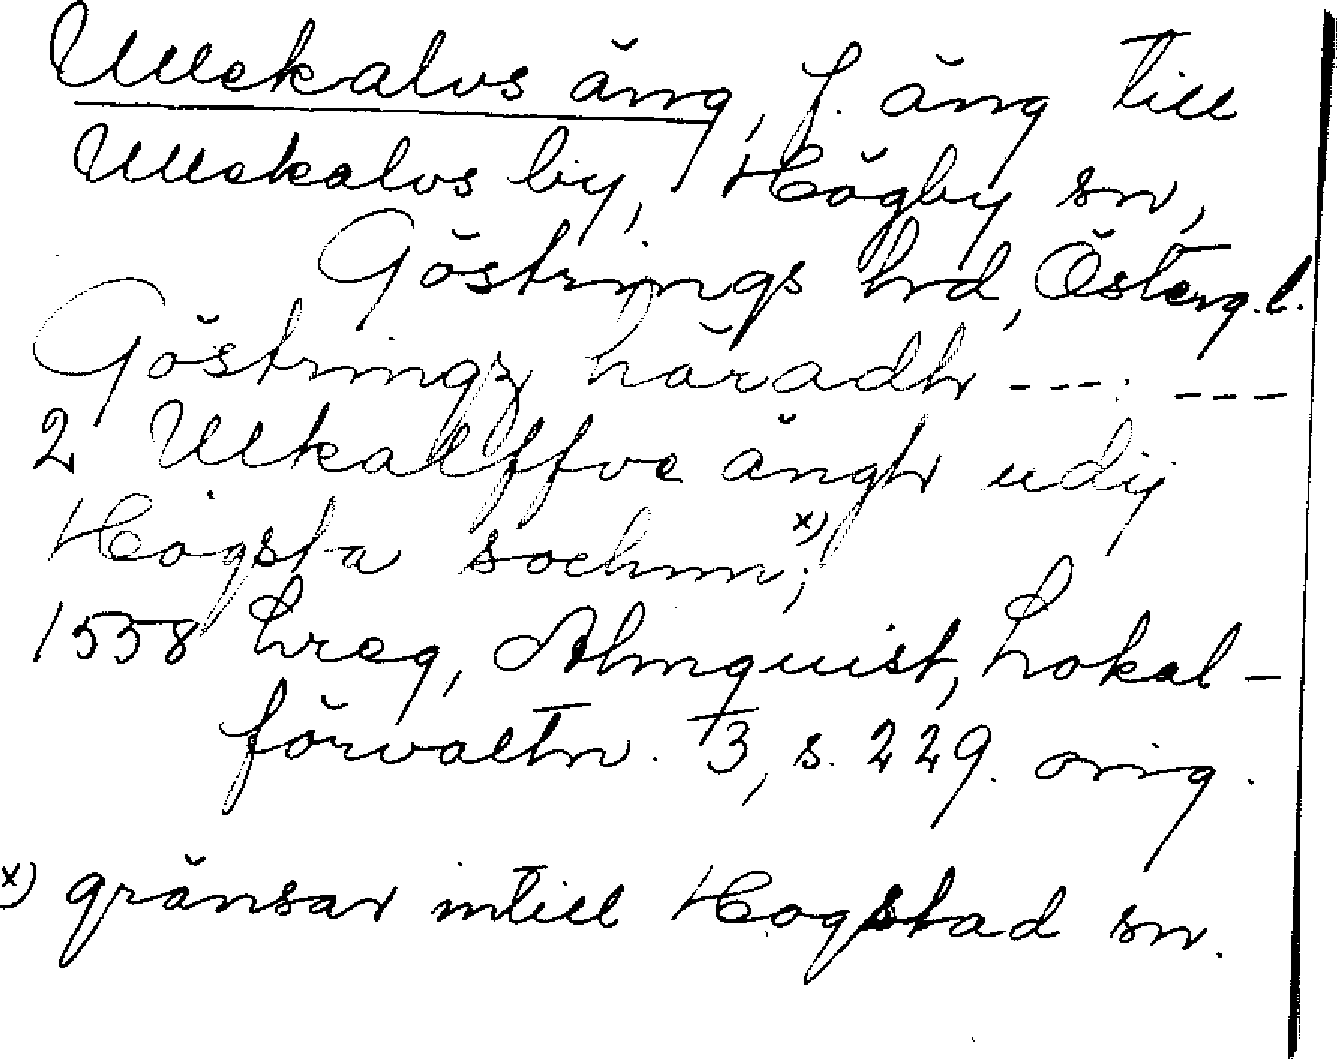 Ullekalvs äng, f. äng till
Ullekalvs by, Högby sn,
Göstrings hrd, Österg.l.
Göstringz häradh --- ---
2 Ulkalffve ängh udij
Högsta sochnn x);
1558 Lreg, Almquist, Lokal-
förvaltn. 3, s. 229. orig.
x) gränsar intill Hogstad sn.